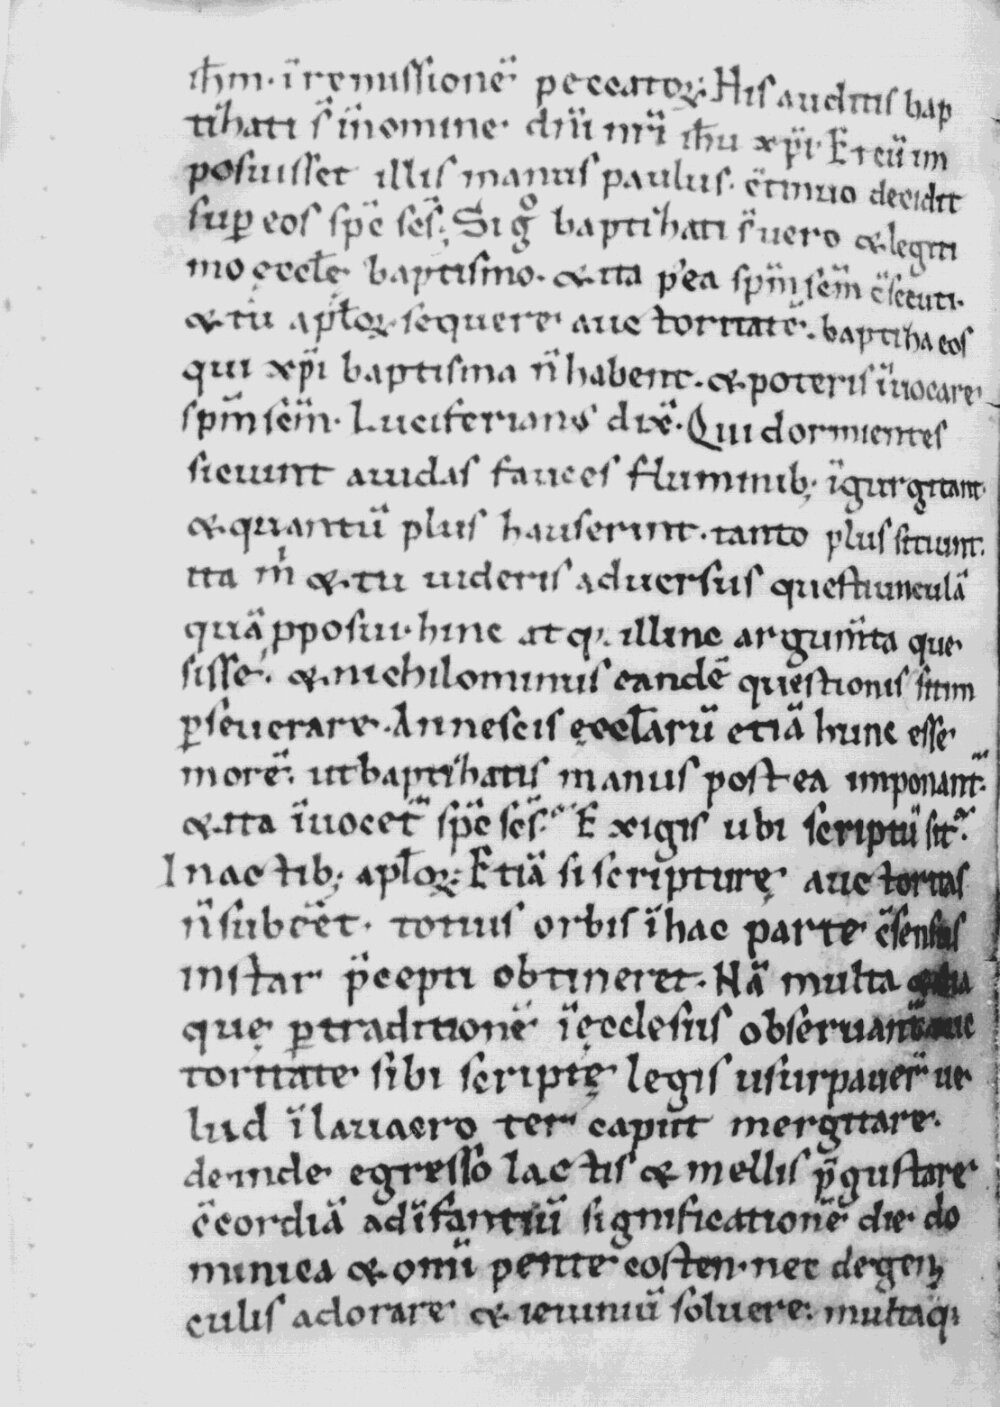 ih̄m. ī remissionē peccatoꝝ. His auditis bap
tiħati s̄ īnomine dn̄i nr̄i ih̄u xp̄i. Et cū im
posuisset illis manus paulus. c̄tinuo decidit
suꝑ eos sp̄c sc̄s. Si gͦ baptiħati s̄ uero & legiti
mo ęccl̄ę baptismo. & ita p̄ea sp̄m sc̄m c̄secuti.
& tu apl̄oꝝ sequere auctoritatē. baptiħa eos
qui xp̄i baptisma n̄ habent. & poteris īuocare
sp̄m sc̄m. Luciferianꝰ dix̄. Qui dormientes
siciunt auidas fauces fluminib; īgurgitant.
& quantū plus hauserint. tanto plus sitiunt.
ita m̍ & tu uideris aduersus questiunculā
quā ꝓposui. hinc atq; illinc argum̄ta que
sisse. & nichilominus eandē quęstionis sitim
ꝑseuerare. An nescis ęccl̄arū etiā hunc esse
morē. ut baptiħatis manus postea imponant̄.
& ita īuocet̄ sp̄c sc̄s. Exigis ubi scriptū sit.
In actib; apl̄oꝝ. Etiā si scripturę auctoritas
n̄ subēēt. totius orbis ī hac parte c̄sensus
instar p̄cepti obtineret. Nā multa & alia
quę ꝑ traditionē ī ęcclesiis obseruant̄ auc
toritate sibi scriptę legis usurpauer̄ ue
lud ī lauacro ter caput mergitare.
deinde egresso lactis & mellis p̄gustare
c̄cordiā ad īfantiū significationē die do
minica & omī pentecosten. nec de geni
culis adorare & ieiuniū soluere. multaq;